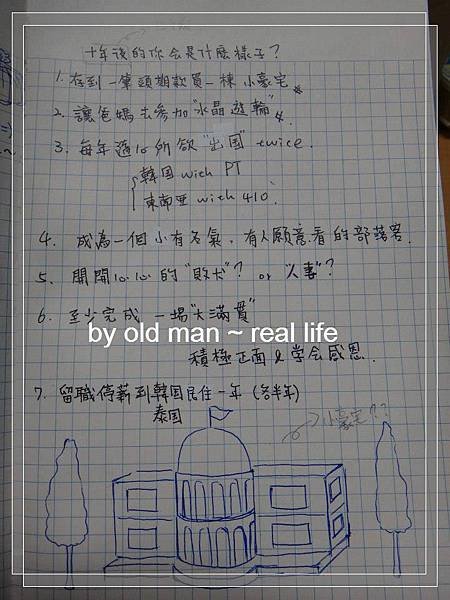 十年後的你会是什麼樣子？
1. 存到一筆頭期款買一棟小豪宅
2. 讓爸媽去參加"水晶遊輪"
3. 每年隨心所欲"出国" twice.
韓国 with PT
東南亚 with 410.
4. 成為一個小有名氣，有人願意看的部落客.
5. 開開心心的"敗犬"? or "人妻"?
6. 至少完成一場"大滿貫"
by old man ~ real life
積極正面 & 学会感恩.
7. 留職停薪到韓国民住一年 (各半年)
泰国
小豪宅??